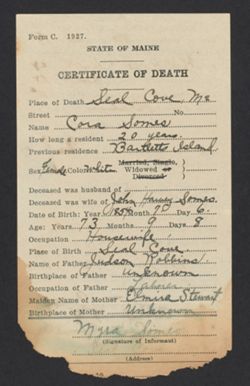 Form C. 1927.
STATE OF MAINE
CERTIFICATE OF DEATH
Place of Death Seal Cove, Me
Street No.
Name Cora Somes
How long a resident 20 years.
Previous residence Bartletts Island.
Sex Female Color White Married, Single, Widowed or Divorced
Deceased was husband of
Deceased was wife of John Somes.
Date of Birth: Year 1857 Month Day 6
Age: Years 73 Months 9 Days 8
Occupation Housewife
Place of Birth Seal Cove.
Name of Father Judson Robbins
Birthplace of Father Unknown
Occupation of Father Laborer
Maiden Name of Mother Elmira Stewart
Birthplace of Mother Unknown
Myra Somes
(Signature of Informant)
(Address)